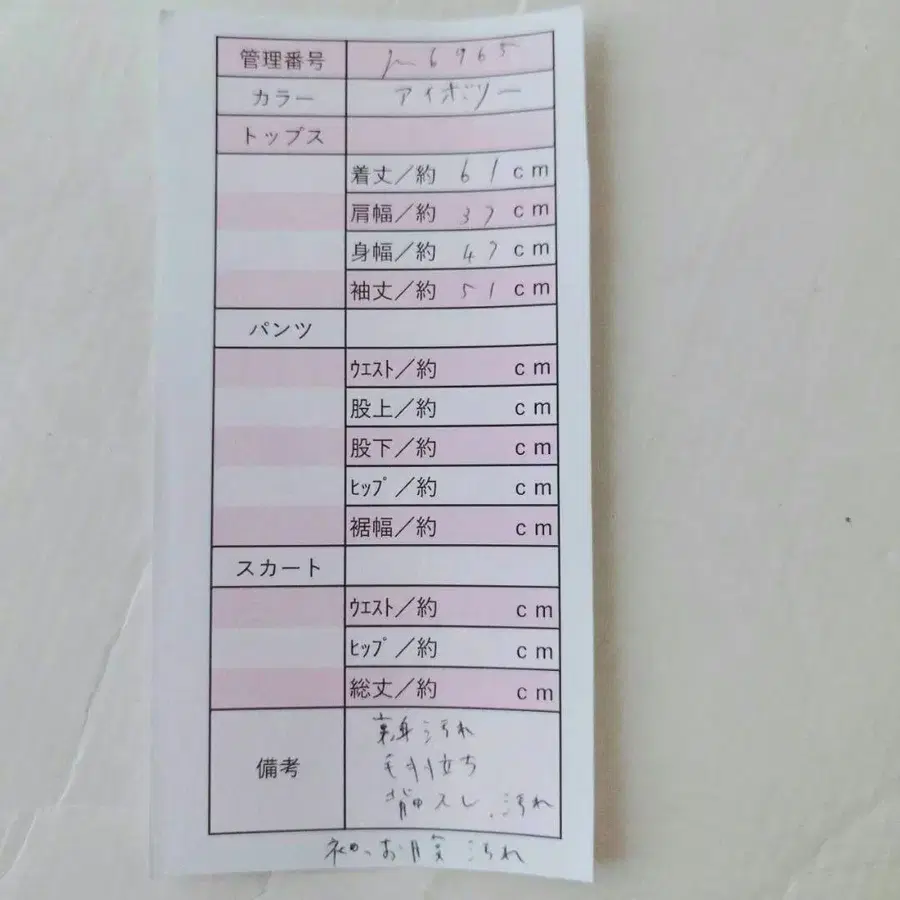 管理番号 6965
カラー アイボリー
トップス
着丈／約 61 cm
肩幅／約 37 cm
身幅／約 47 cm
袖丈／約 51 cm
パンツ
ｳｴｽﾄ／約 cm
股上／約 cm
股下／約 cm
ﾋｯﾌﾟ／約 cm
裾幅／約 cm
スカート
ｳｴｽﾄ／約 cm
ﾋｯﾌﾟ／約 cm
総丈／約 cm
備考
汚れ
毛羽立ち
背中スレ、汚れ
袖、お腹汚れ